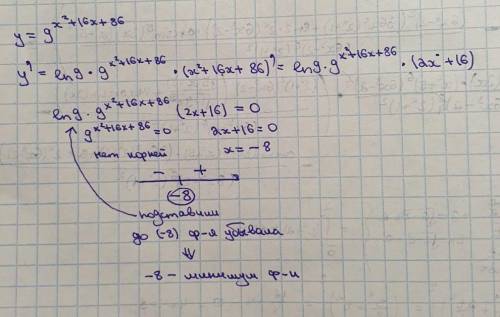 y = 9^{x²+16x+86}
y' = ln9 · 9^{x²+16x+86} · (x²+16x+86)' = ln9 · 9^{x²+16x+86} · (2x+16)
ln9 · 9^{x²+16x+86} (2x+16) = 0
9^{x²+16x+86} = 0 2x+16=0
нет корней x = -8
- +
-8
подставим
до (-8) ф-я убывала
⇓
-8 - минимум ф-и